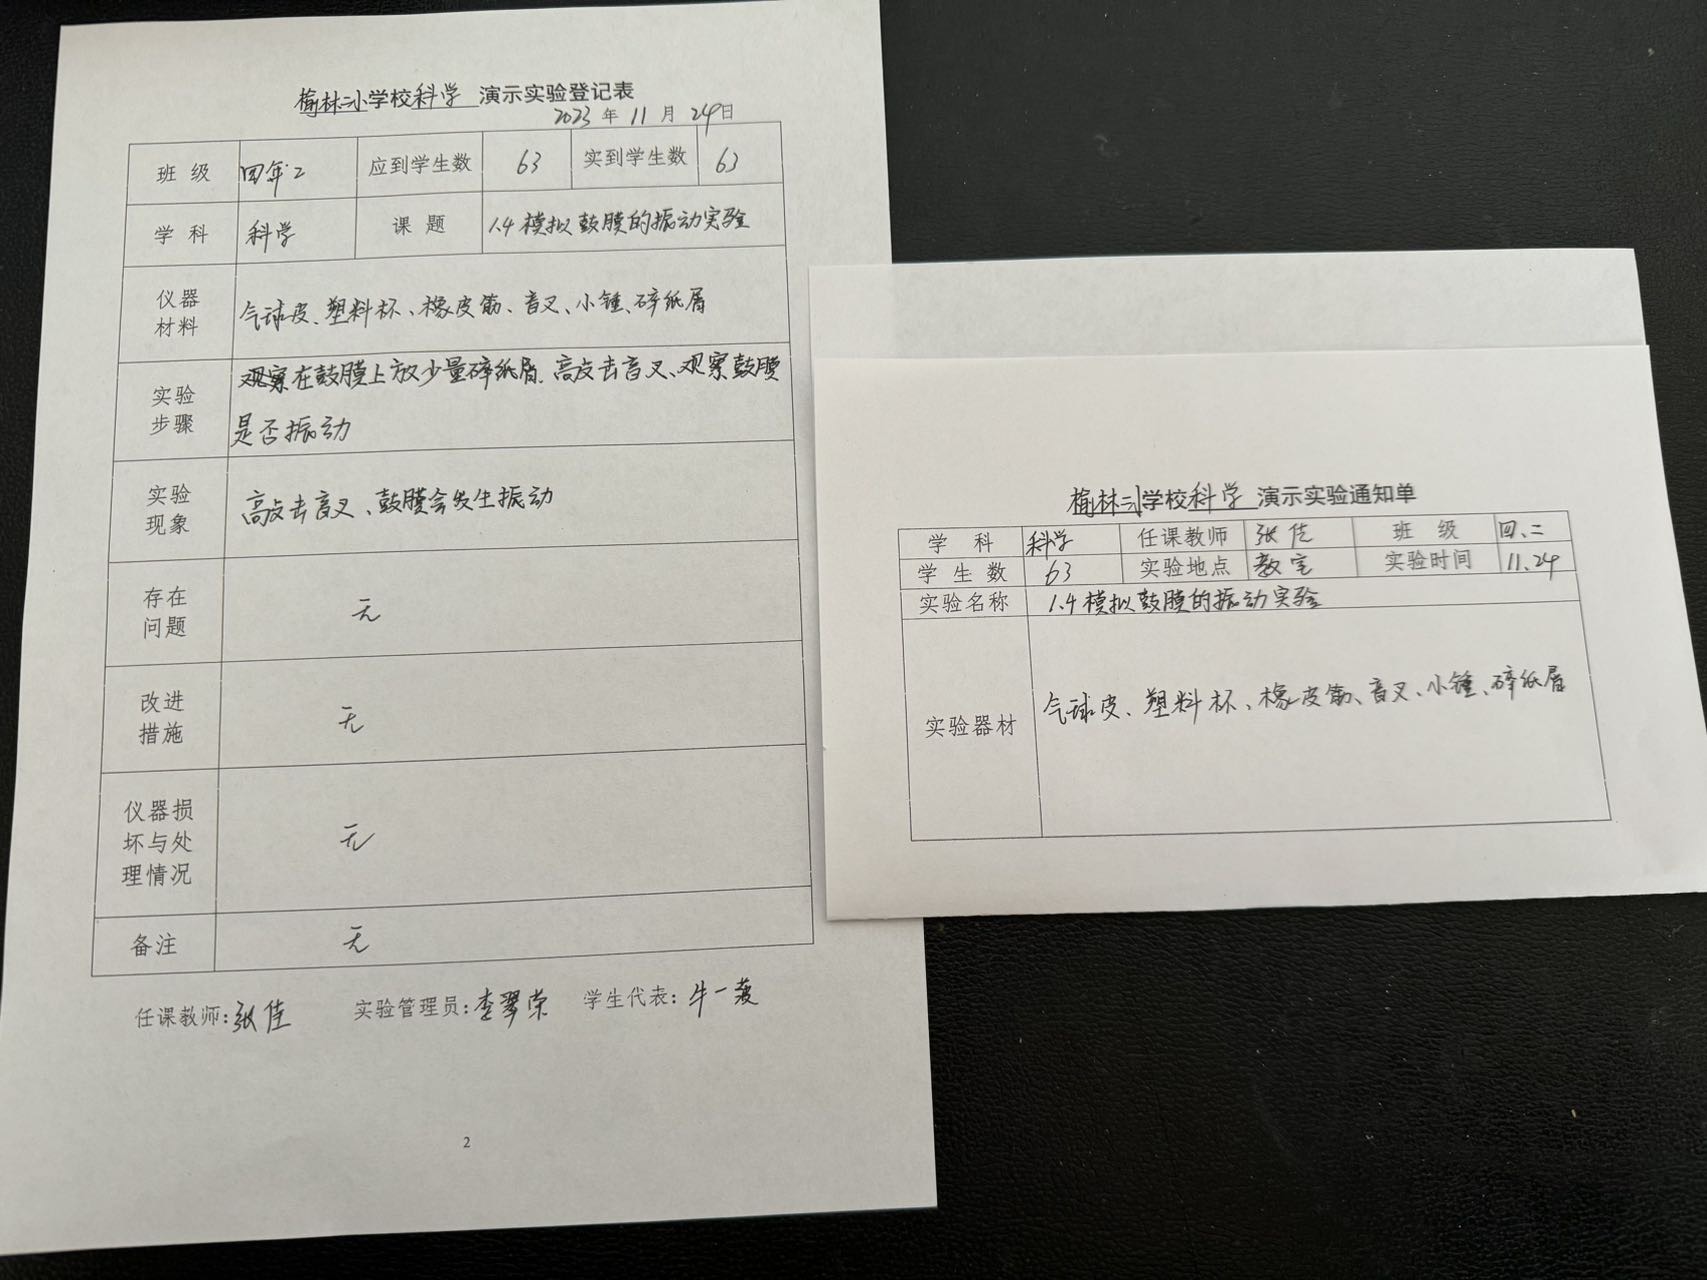 榆林二小学校科学 演示实验登记表
2023 年 11 月 24日
班 级 四年二 应到学生数 63 实到学生数 63
学 科 科学 课 题 1.4 模拟鼓膜的振动实验
仪器
材料
气球皮、塑料杯、橡皮筋、音叉、小锤、碎纸屑
实验
步骤
观察在鼓膜上放少量碎纸屑、高点击音叉、观察鼓膜
是否振动
实验
现象
高点击音叉、鼓膜会发生振动
存在
问题
无
改进
措施
无
仪器损
坏与处
理情况
无
备注 无
任课教师:张佳 实验管理员:李翠荣 学生代表:牛一
2
榆林二小学校科学 演示实验通知单
学 科 科学 任课教师 张佳 班 级 四、二
学 生 数 63 实验地点 教室 实验时间 11.24
实验名称 1.4 模拟鼓膜的振动实验
实验器材 气球皮、塑料杯、橡皮筋、音叉、小锤、碎纸屑